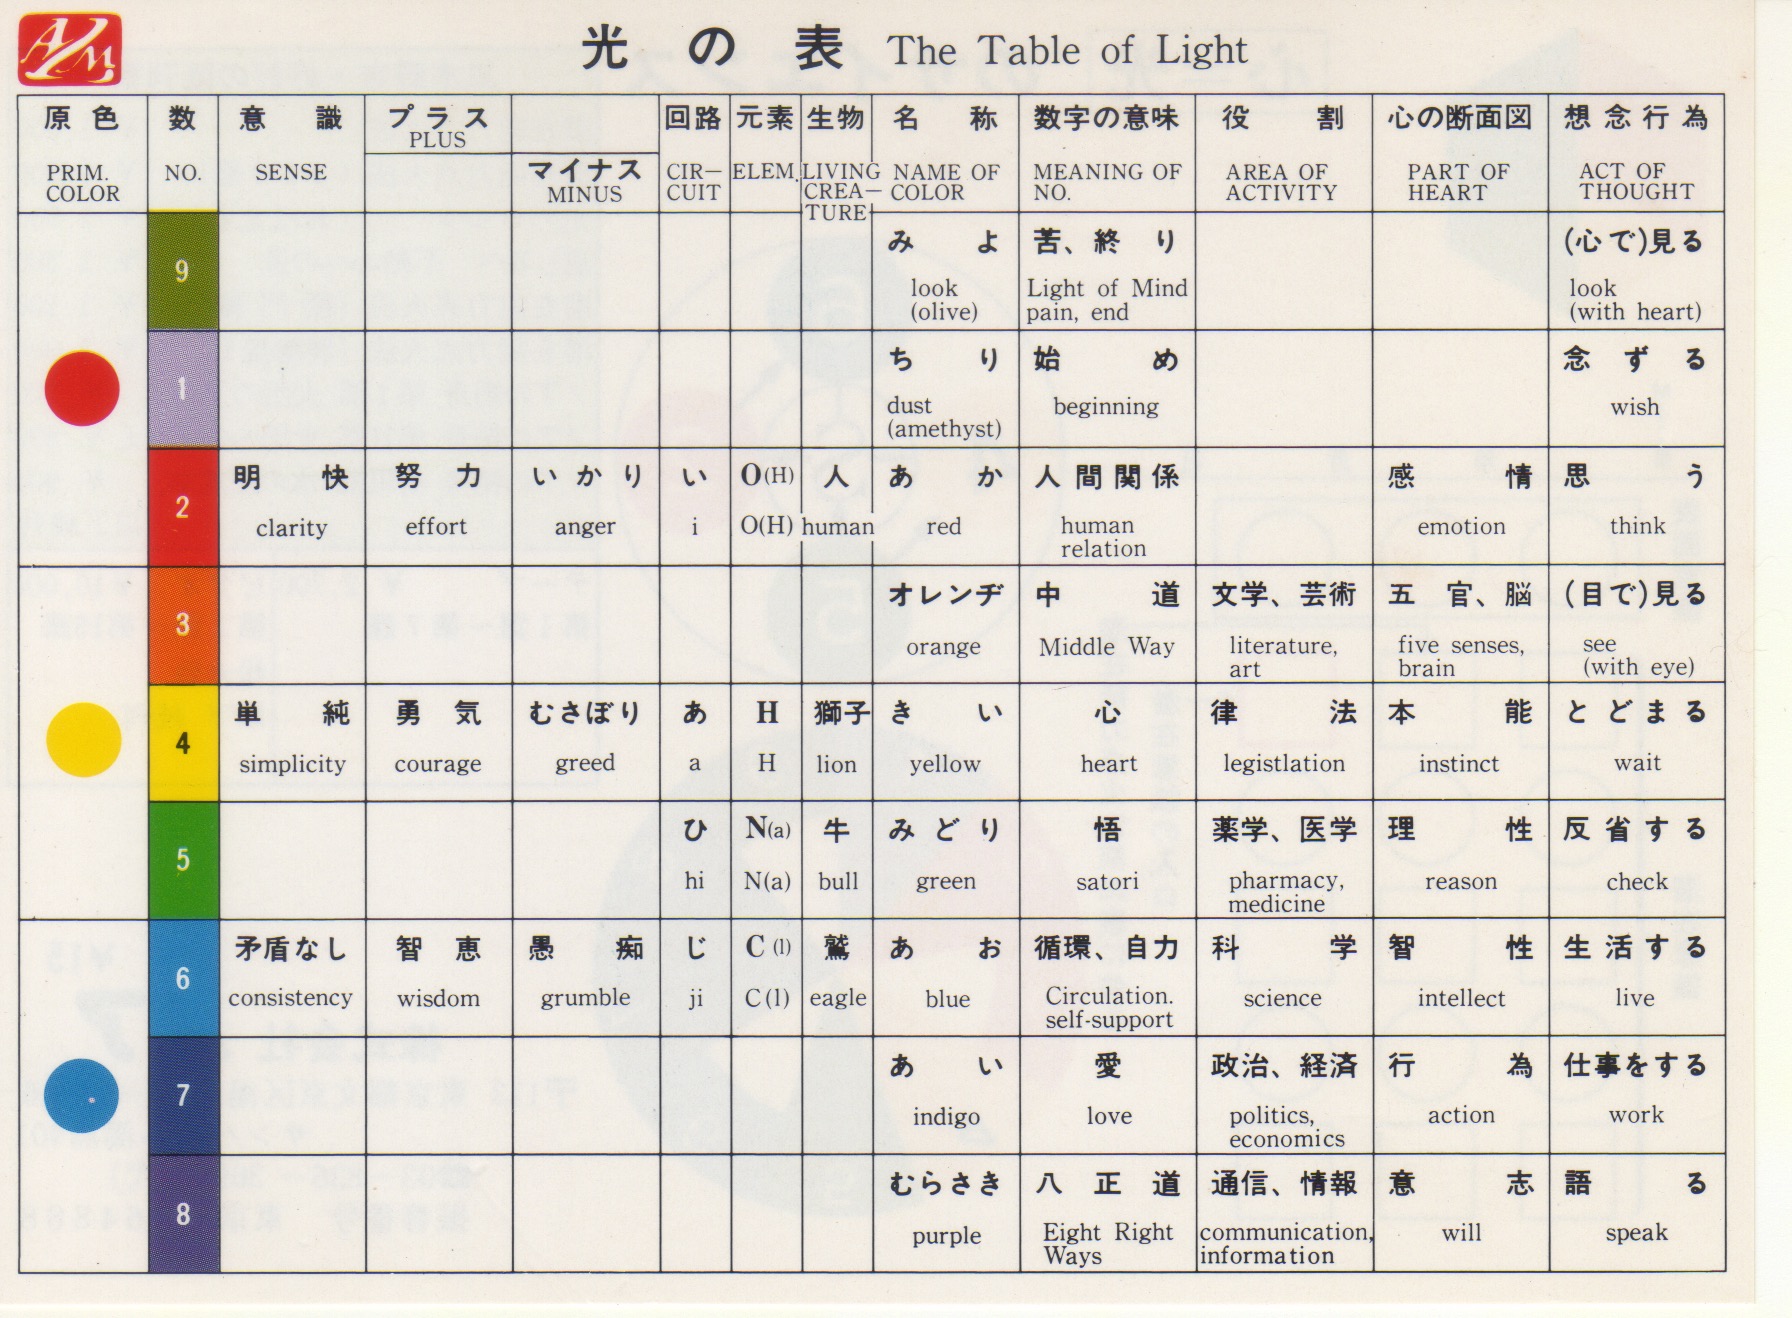 AM
光の表 The Table of Light
原色 数 意識 プラス 回路 元素 生物 名称 数字の意味 役割 心の断面図 想念行為
PLUS
マイナス
PRIM. NO. SENSE MINUS CIR– ELEM. LIVING NAME OF MEANING OF AREA OF PART OF ACT OF
COLOR CUIT CREA– COLOR NO. ACTIVITY HEART THOUGHT
TURE
9 みよ 苦、終り (心で)見る
look Light of Mind look
(olive) pain, end (with heart)
1 ちり 始め 念ずる
dust beginning wish
(amethyst)
2 明快 努力 いかり い O(H) 人 あか 人間関係 感情 思う
clarity effort anger i O(H) human red human emotion think
relation
3 オレンヂ 中道 文学、芸術 五官、脳 (目で)見る
orange Middle Way literature, five senses, see
art brain (with eye)
4 単純 勇気 むさぼり あ H 獅子 きい 心 律法 本能 とどまる
simplicity courage greed a H lion yellow heart legistlation instinct wait
5 ひ N(a) 牛 みどり 悟 薬学、医学 理性 反省する
hi N(a) bull green satori pharmacy, reason check
medicine
6 矛盾なし 智恵 愚痴 じ C(l) 鷲 あお 循環、自力 科学 智性 生活する
consistency wisdom grumble ji C(l) eagle blue Circulation. science intellect live
self-support
7 あい 愛 政治、経済 行為 仕事をする
indigo love politics, action work
economics
8 むらさき 八正道 通信、情報 意志 語る
purple Eight Right communication, will speak
Ways information